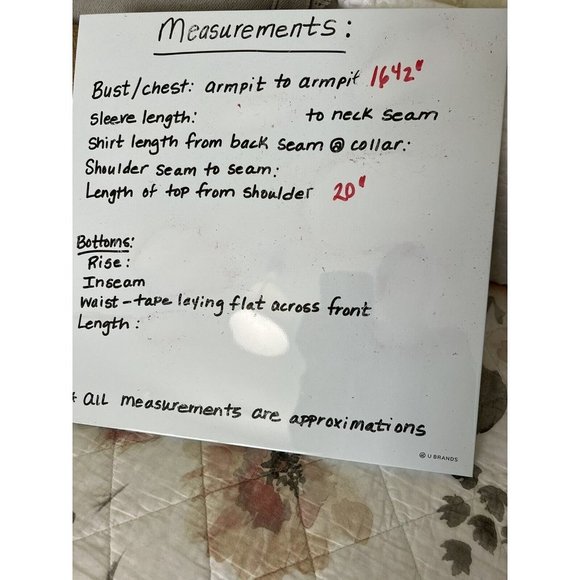 Measurements:
Bust/chest: armpit to armpit 16 1/2"
Sleeve length: to neck seam
Shirt length from back seam @ collar:
Shoulder seam to seam:
Length of top from shoulder 20"
Bottoms:
Rise:
Inseam
Waist - tape laying flat across front
Length:
* all measurements are approximations
U BRANDS